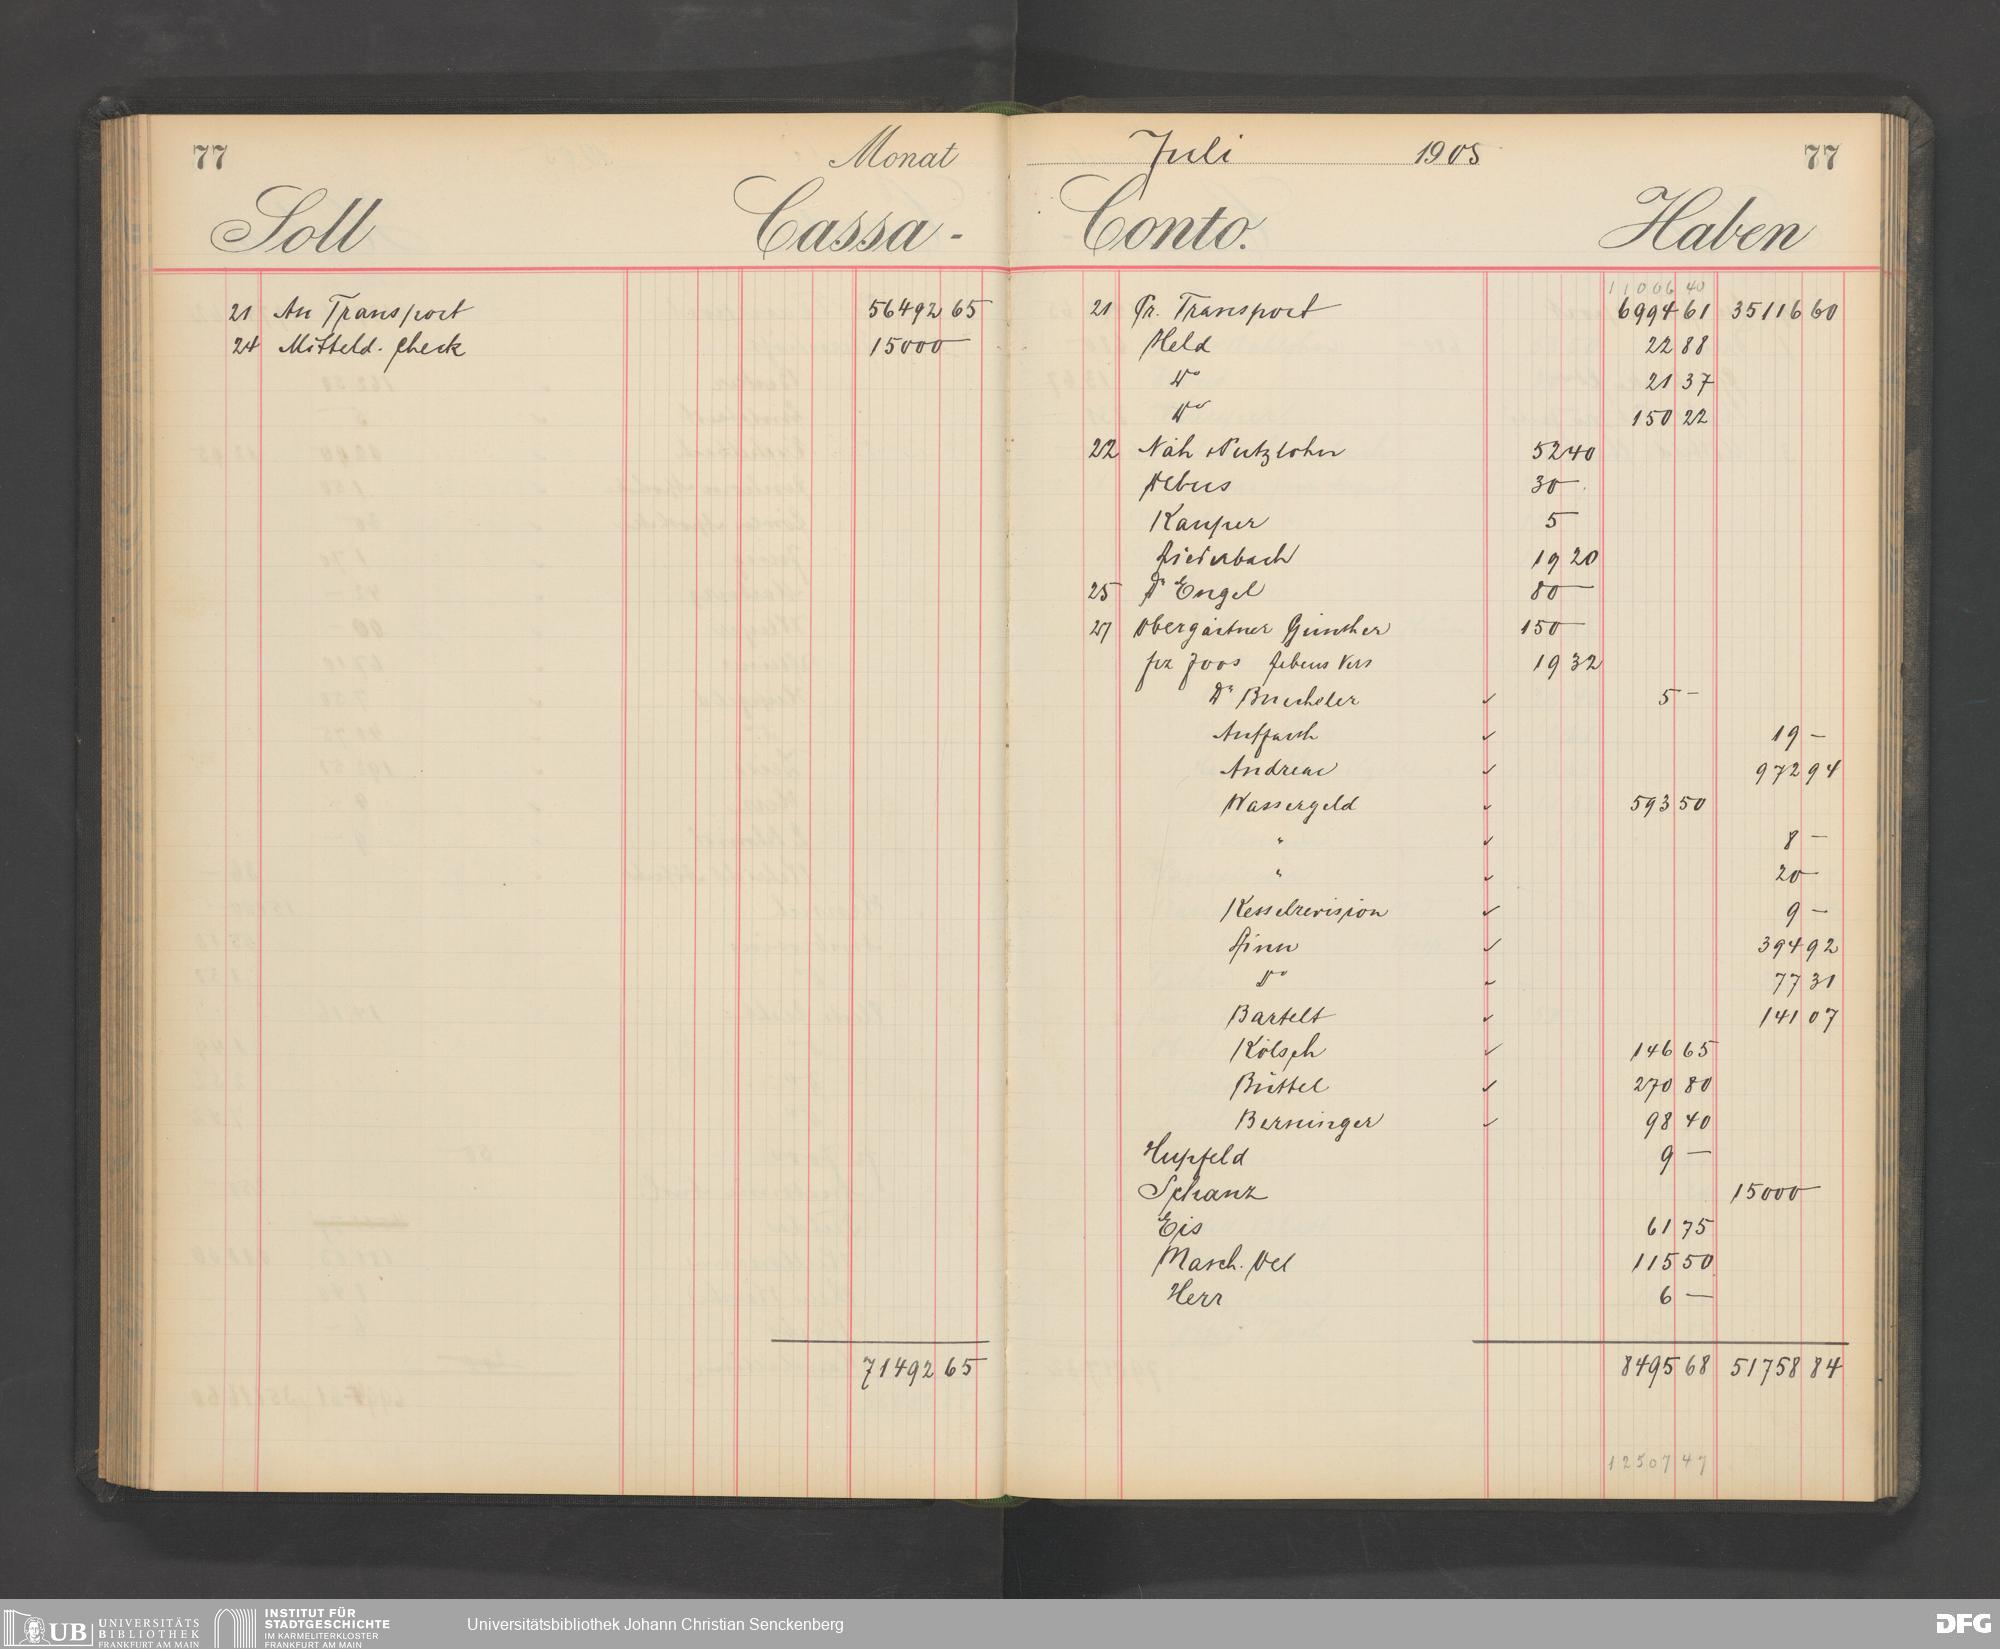 77 Monat Juli 1905 77
Soll Cassa - Conto. Haben
11006 40
21 An Transport 56492 65
24 Mitteld. Check 15000 —
71492 65
21 Pr. Transport 6994 61 35116 60
Held 22 88
Do 21 37
Do 150 22
22 Näh & Putzlohn 52 40
Debus 30 —
Kauper 5 —
Liederbach 19 20
25 Dr Engel 80 —
27 Obergärtner Günther 150 —
pr Joos Lebens Vers 19 32
Dr Buecheler ✓ 5 —
Auffarth ✓ 19 —
Andreae ✓ 972 94
Wassergeld ✓ 593 50
" ✓ 8 —
" ✓ 20 —
Kesselrevision ✓ 9 —
Sinn ✓ 394 92
Do ✓ 77 31
Bartelt ✓ 141 07
Kölsch ✓ 146 65
Büttel ✓ 270 80
Berninger ✓ 98 40
Hupfeld 9 —
Schanz 15000 —
Eis 61 75
Masch. Oel 115 50
Herr 6 —
8495 68 51758 84
12507 47
UB UNIVERSITÄTS
BIBLIOTHEK
FRANKFURT AM MAIN
INSTITUT FÜR
STADTGESCHICHTE
IM KARMELITERKLOSTER
FRANKFURT AM MAIN
Universitätsbibliothek Johann Christian Senckenberg
DFG